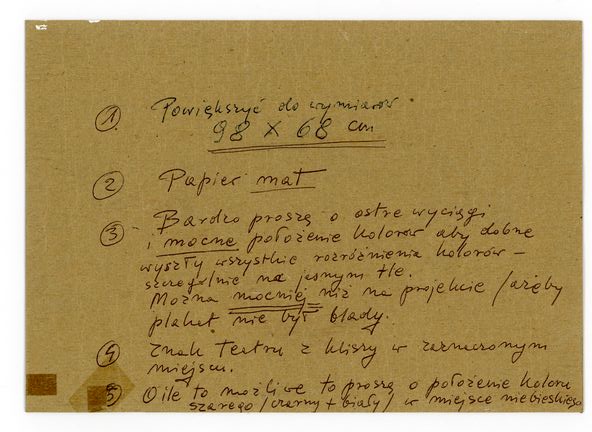 1. Powiększyć do wymiarów
98 x 68 cm
2 Papier mat
3 Bardzo proszę o ostre wyciągi
i mocne położenie kolorów aby dobrze
wyszły wszystkie rozróżnienia kolorów –
szczególnie na jasnym tle.
Można mocniej niż na projekcie /ażeby
plakat nie był blady.
4 Znak Teatru z kliszy w zaznaczonym
miejscu.
5 O ile to możliwe to proszę o położenie koloru
szarego /czarny + biały/ w miejsce niebieskiego